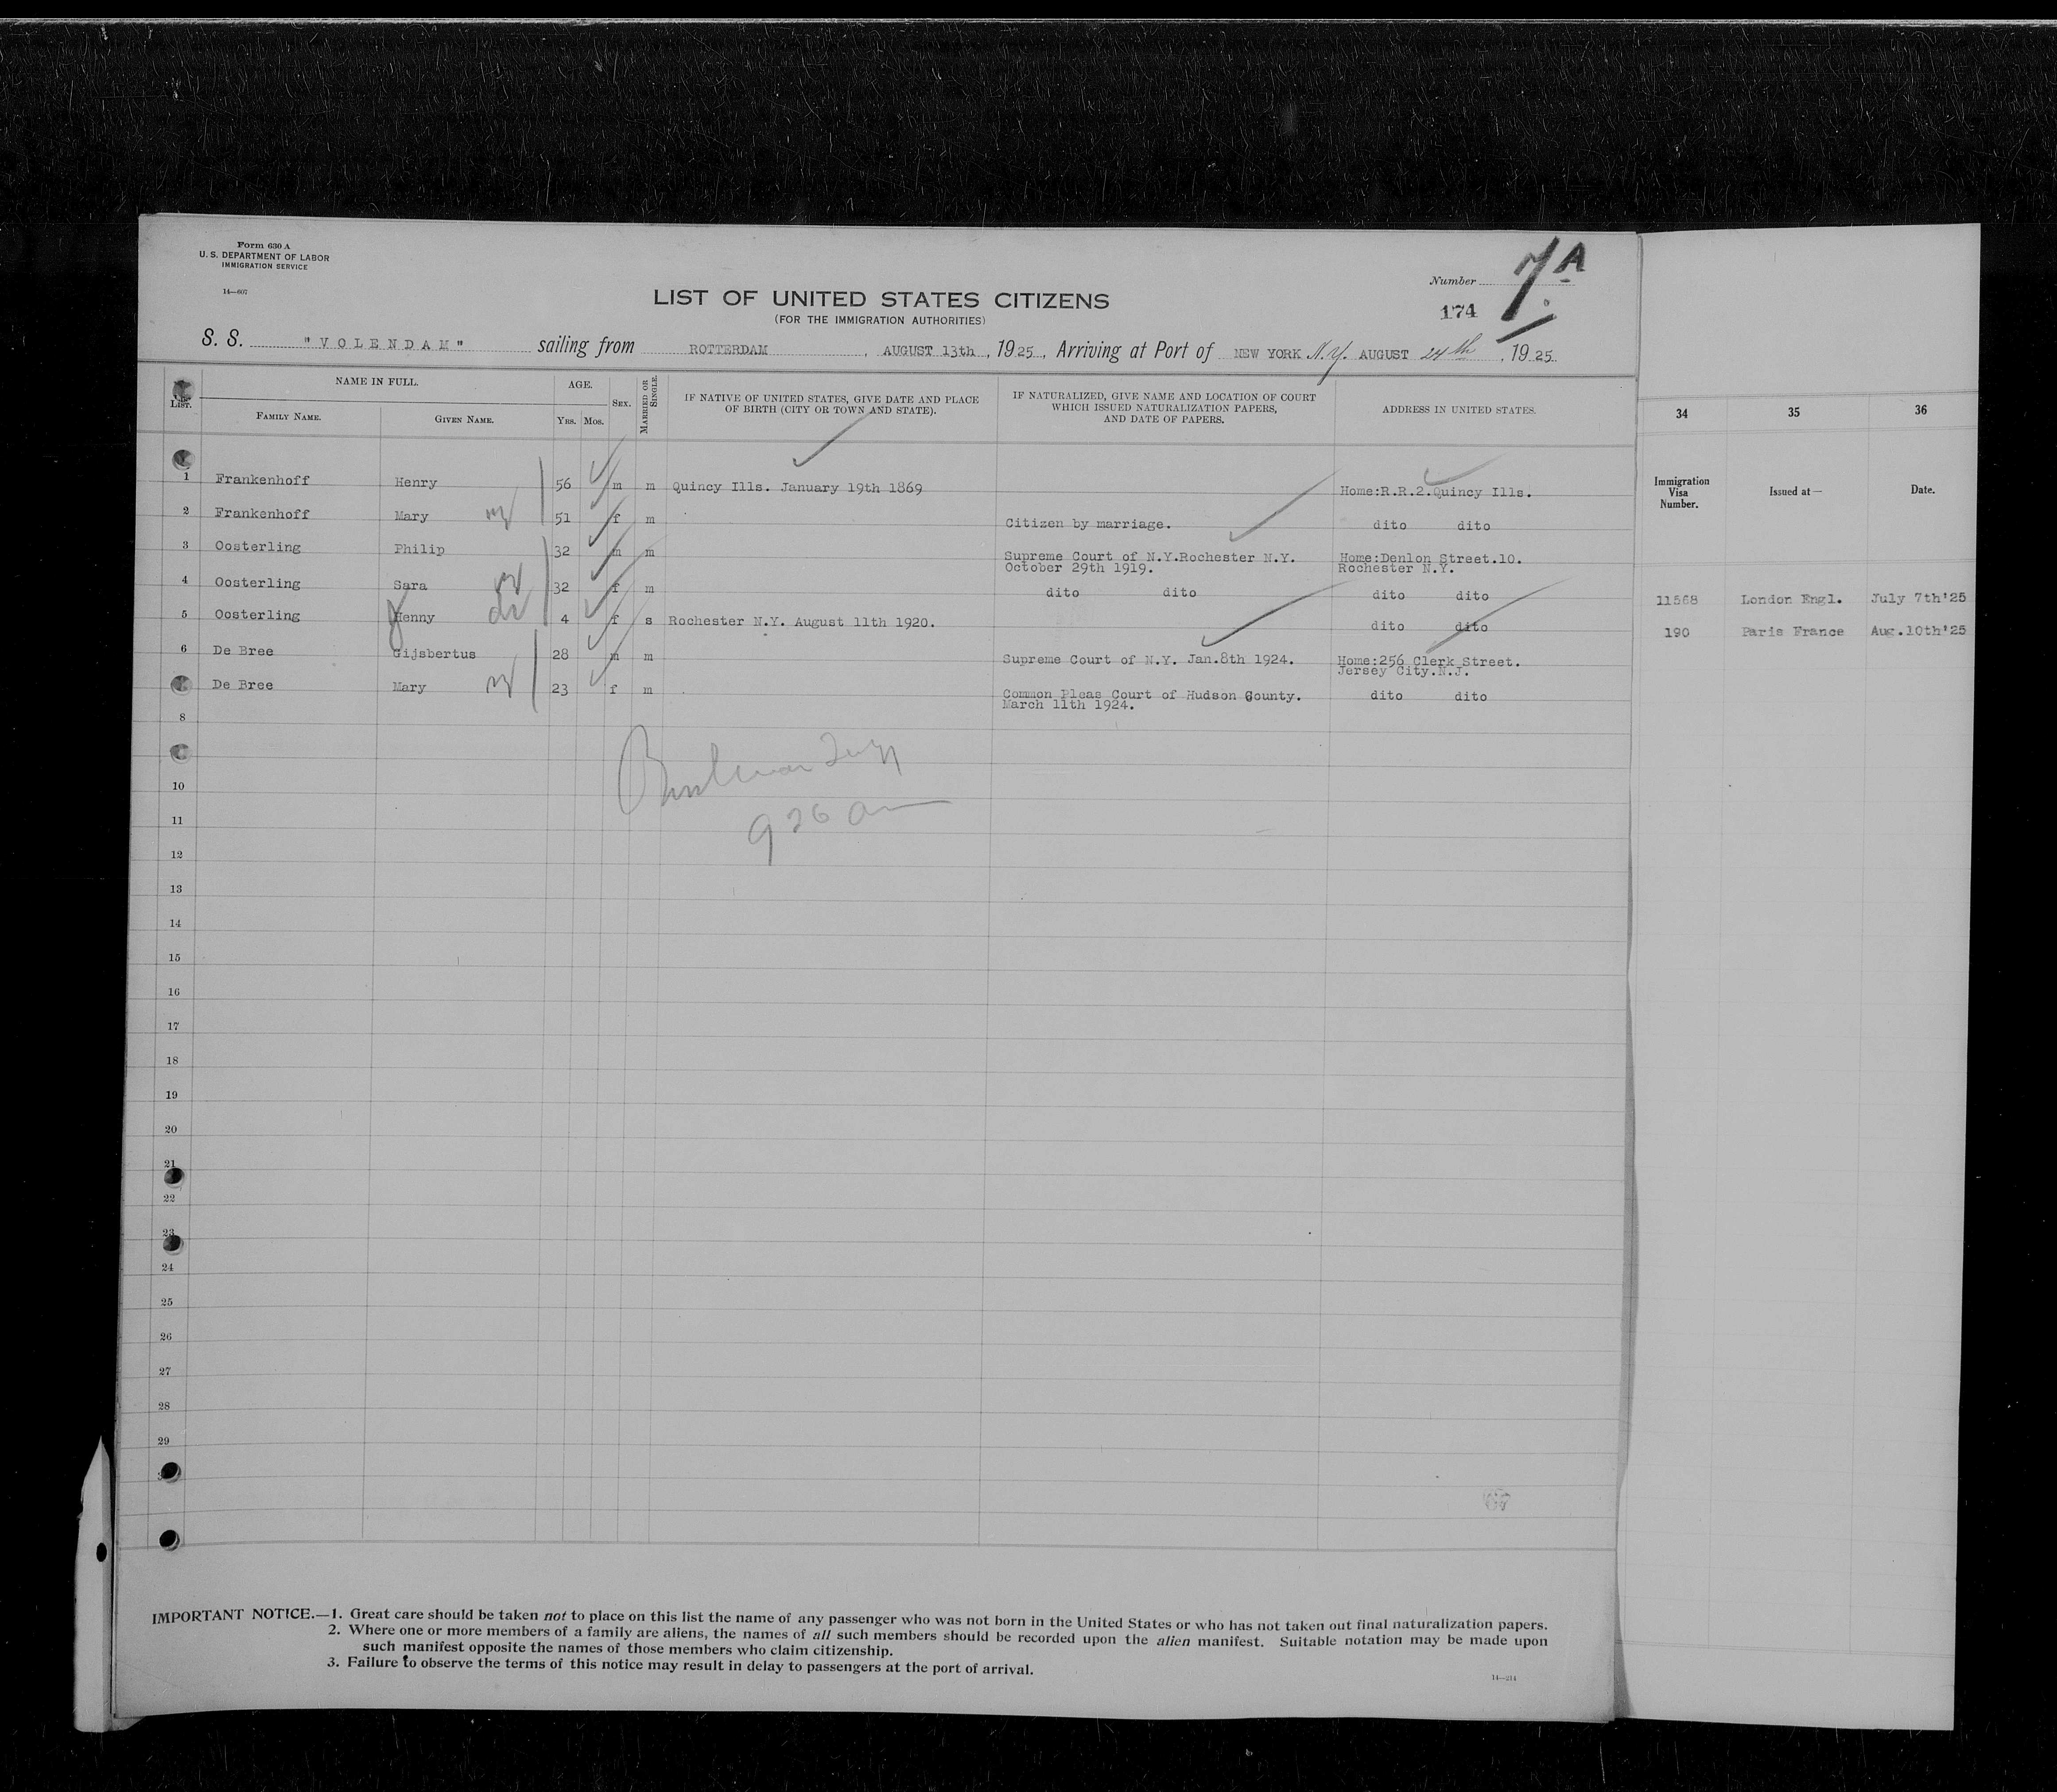 Form 630 A
U. S. DEPARTMENT OF LABOR
IMMIGRATION SERVICE
14—607
Number 7A
174
LIST OF UNITED STATES CITIZENS
(FOR THE IMMIGRATION AUTHORITIES)
S. S. "VOLENDAM" sailing from ROTTERDAM, AUGUST 13th, 1925, Arriving at Port of NEW YORK N.Y. AUGUST 24th, 1925.
LIST. NAME IN FULL. AGE. SEX. MARRIED OR SINGLE. IF NATIVE OF UNITED STATES, GIVE DATE AND PLACE OF BIRTH (CITY OR TOWN AND STATE). IF NATURALIZED, GIVE NAME AND LOCATION OF COURT WHICH ISSUED NATURALIZATION PAPERS, AND DATE OF PAPERS. ADDRESS IN UNITED STATES.
FAMILY NAME. GIVEN NAME. YRS. MOS.
1 Frankenhoff Henry 56 m m Quincy Ills. January 19th 1869 Home:R.R.2.Quincy Ills.
2 Frankenhoff Mary 51 f m Citizen by marriage. dito dito
3 Oosterling Philip 32 m m Supreme Court of N.Y.Rochester N.Y. Home:Denlon Street.10.
October 29th 1919. Rochester N.Y.
4 Oosterling Sara 32 f m dito dito dito dito
5 Oosterling Henny 4 f s Rochester N.Y. August 11th 1920. dito dito
6 De Bree Gijsbertus 28 m m Supreme Court of N.Y. Jan.8th 1924. Home:256 Clerk Street.
Jersey City.N.J.
De Bree Mary 23 f m Common Pleas Court of Hudson County. dito dito
March 11th 1924.
8
10
9 26 am
11
12
13
14
15
16
17
18
19
20
21
22
23
24
25
26
27
28
29
IMPORTANT NOTICE.—1. Great care should be taken not to place on this list the name of any passenger who was not born in the United States or who has not taken out final naturalization papers.
2. Where one or more members of a family are aliens, the names of all such members should be recorded upon the alien manifest. Suitable notation may be made upon
such manifest opposite the names of those members who claim citizenship.
3. Failure to observe the terms of this notice may result in delay to passengers at the port of arrival.
14—214
34 35 36
Immigration Visa Number. Issued at— Date.
11568 London Engl. July 7th'25
190 Paris France Aug.10th'25